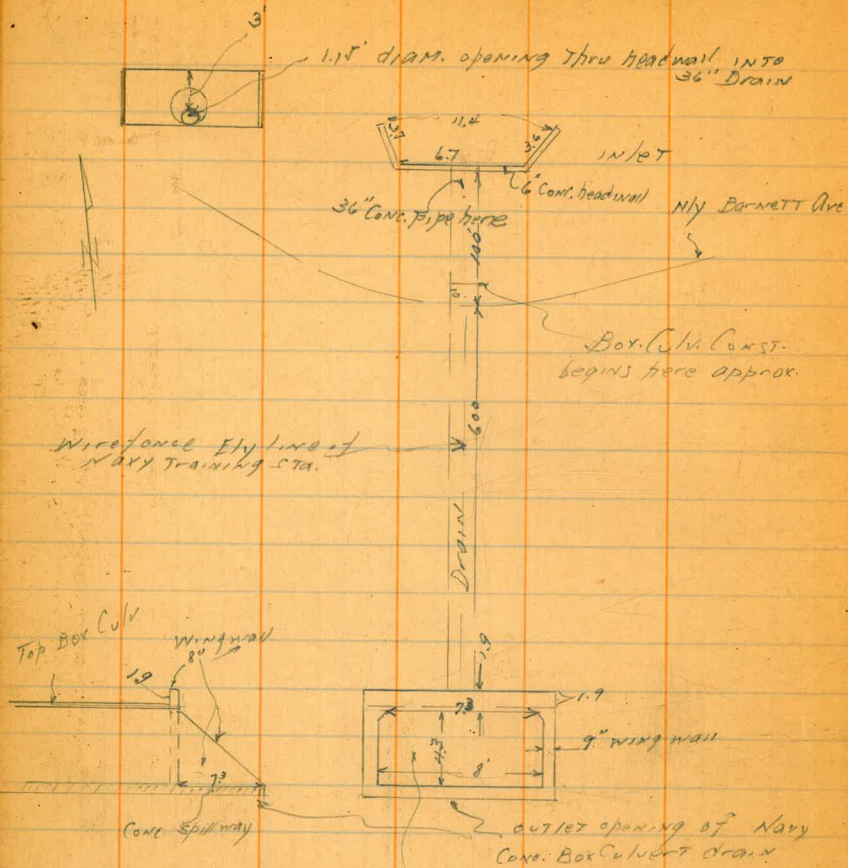 3'
1.15' diam. opening Thru headwall INTO
36" Drain
11.4
3.7
6.7
3.6
INLET
6" Conc. headwall
36" Conc. pipe here
N'ly Barnett Ave
100'
10'
Box. Culv. Const.
begins here approx.
600
Wire fence E'ly line of
Navy Training Sta.
Drain
Top Box Culv.
Wingwall
8"
1.9
1.9
1.9
7.3
4.3
9" wing wall
8'
7.3
Conc. Spillway
OUTLET opening of Navy
Conc. Box Culvert drain